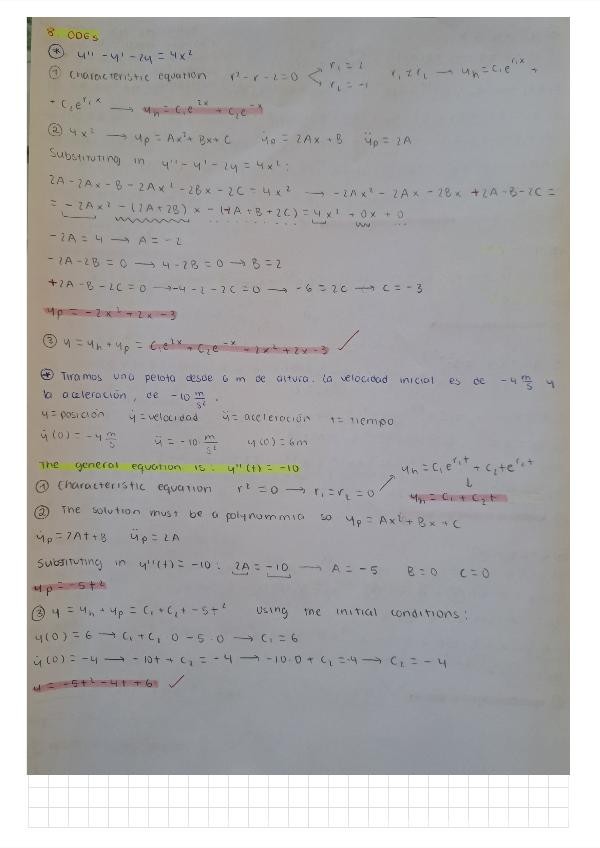 8. ODEs
* y'' - y' - 2y = 4x²
① Characteristic equation r² - r - 2 = 0 r₁ = 2 r₂ = -1 r₁ ≠ r₂ → yₕ = C₁e^{r₁x} +
+ C₂e^{r₂x} → yₕ = C₁e^{2x} + C₂e^{-x}
② 4x² → yp = Ax² + Bx + C ẏp = 2Ax + B ÿp = 2A
Substituting in y'' - y' - 2y = 4x²:
2A - 2Ax - B - 2Ax² - 2Bx - 2C = 4x² → -2Ax² - 2Ax - 2Bx + 2A - B - 2C =
= -2Ax² - (2A + 2B)x - (-2A + B + 2C) = 4x² + 0x + 0
-2A = 4 → A = -2
-2A - 2B = 0 → 4 - 2B = 0 → B = 2
+2A - B - 2C = 0 → -4 - 2 - 2C = 0 → -6 = 2C → C = -3
yp = -2x² + 2x - 3
③ y = yₕ + yp = C₁e^{2x} + C₂e^{-x} - 2x² + 2x - 3 ✓
* Tiramos una pelota desde 6 m de altura. La velocidad inicial es de -4 m/s y
la aceleración, de -10 m/s².
y = posición ẏ = velocidad ÿ = aceleración t = tiempo
ẏ(0) = -4 m/s ÿ = -10 m/s² y(0) = 6m
The general equation is: y''(t) = -10
① Characteristic equation r² = 0 → r₁ = r₂ = 0 → yₕ = C₁e^{r₁t} + C₂te^{r₂t}
↓
yₕ = C₁ + C₂t
② The solution must be a polynommia so yp = Ax² + Bx + C
ẏp = 2At + B ÿp = 2A
Substituting in y''(t) = -10: 2A = -10 → A = -5 B = 0 C = 0
yp = -5t²
③ y = yₕ + yp = C₁ + C₂t - 5t² Using the initial conditions:
y(0) = 6 → C₁ + C₂ 0 - 5·0 → C₁ = 6
ẏ(0) = -4 → -10t + C₂ = -4 → -10·0 + C₂ = -4 → C₂ = -4
y = -5t² - 4t + 6 ✓